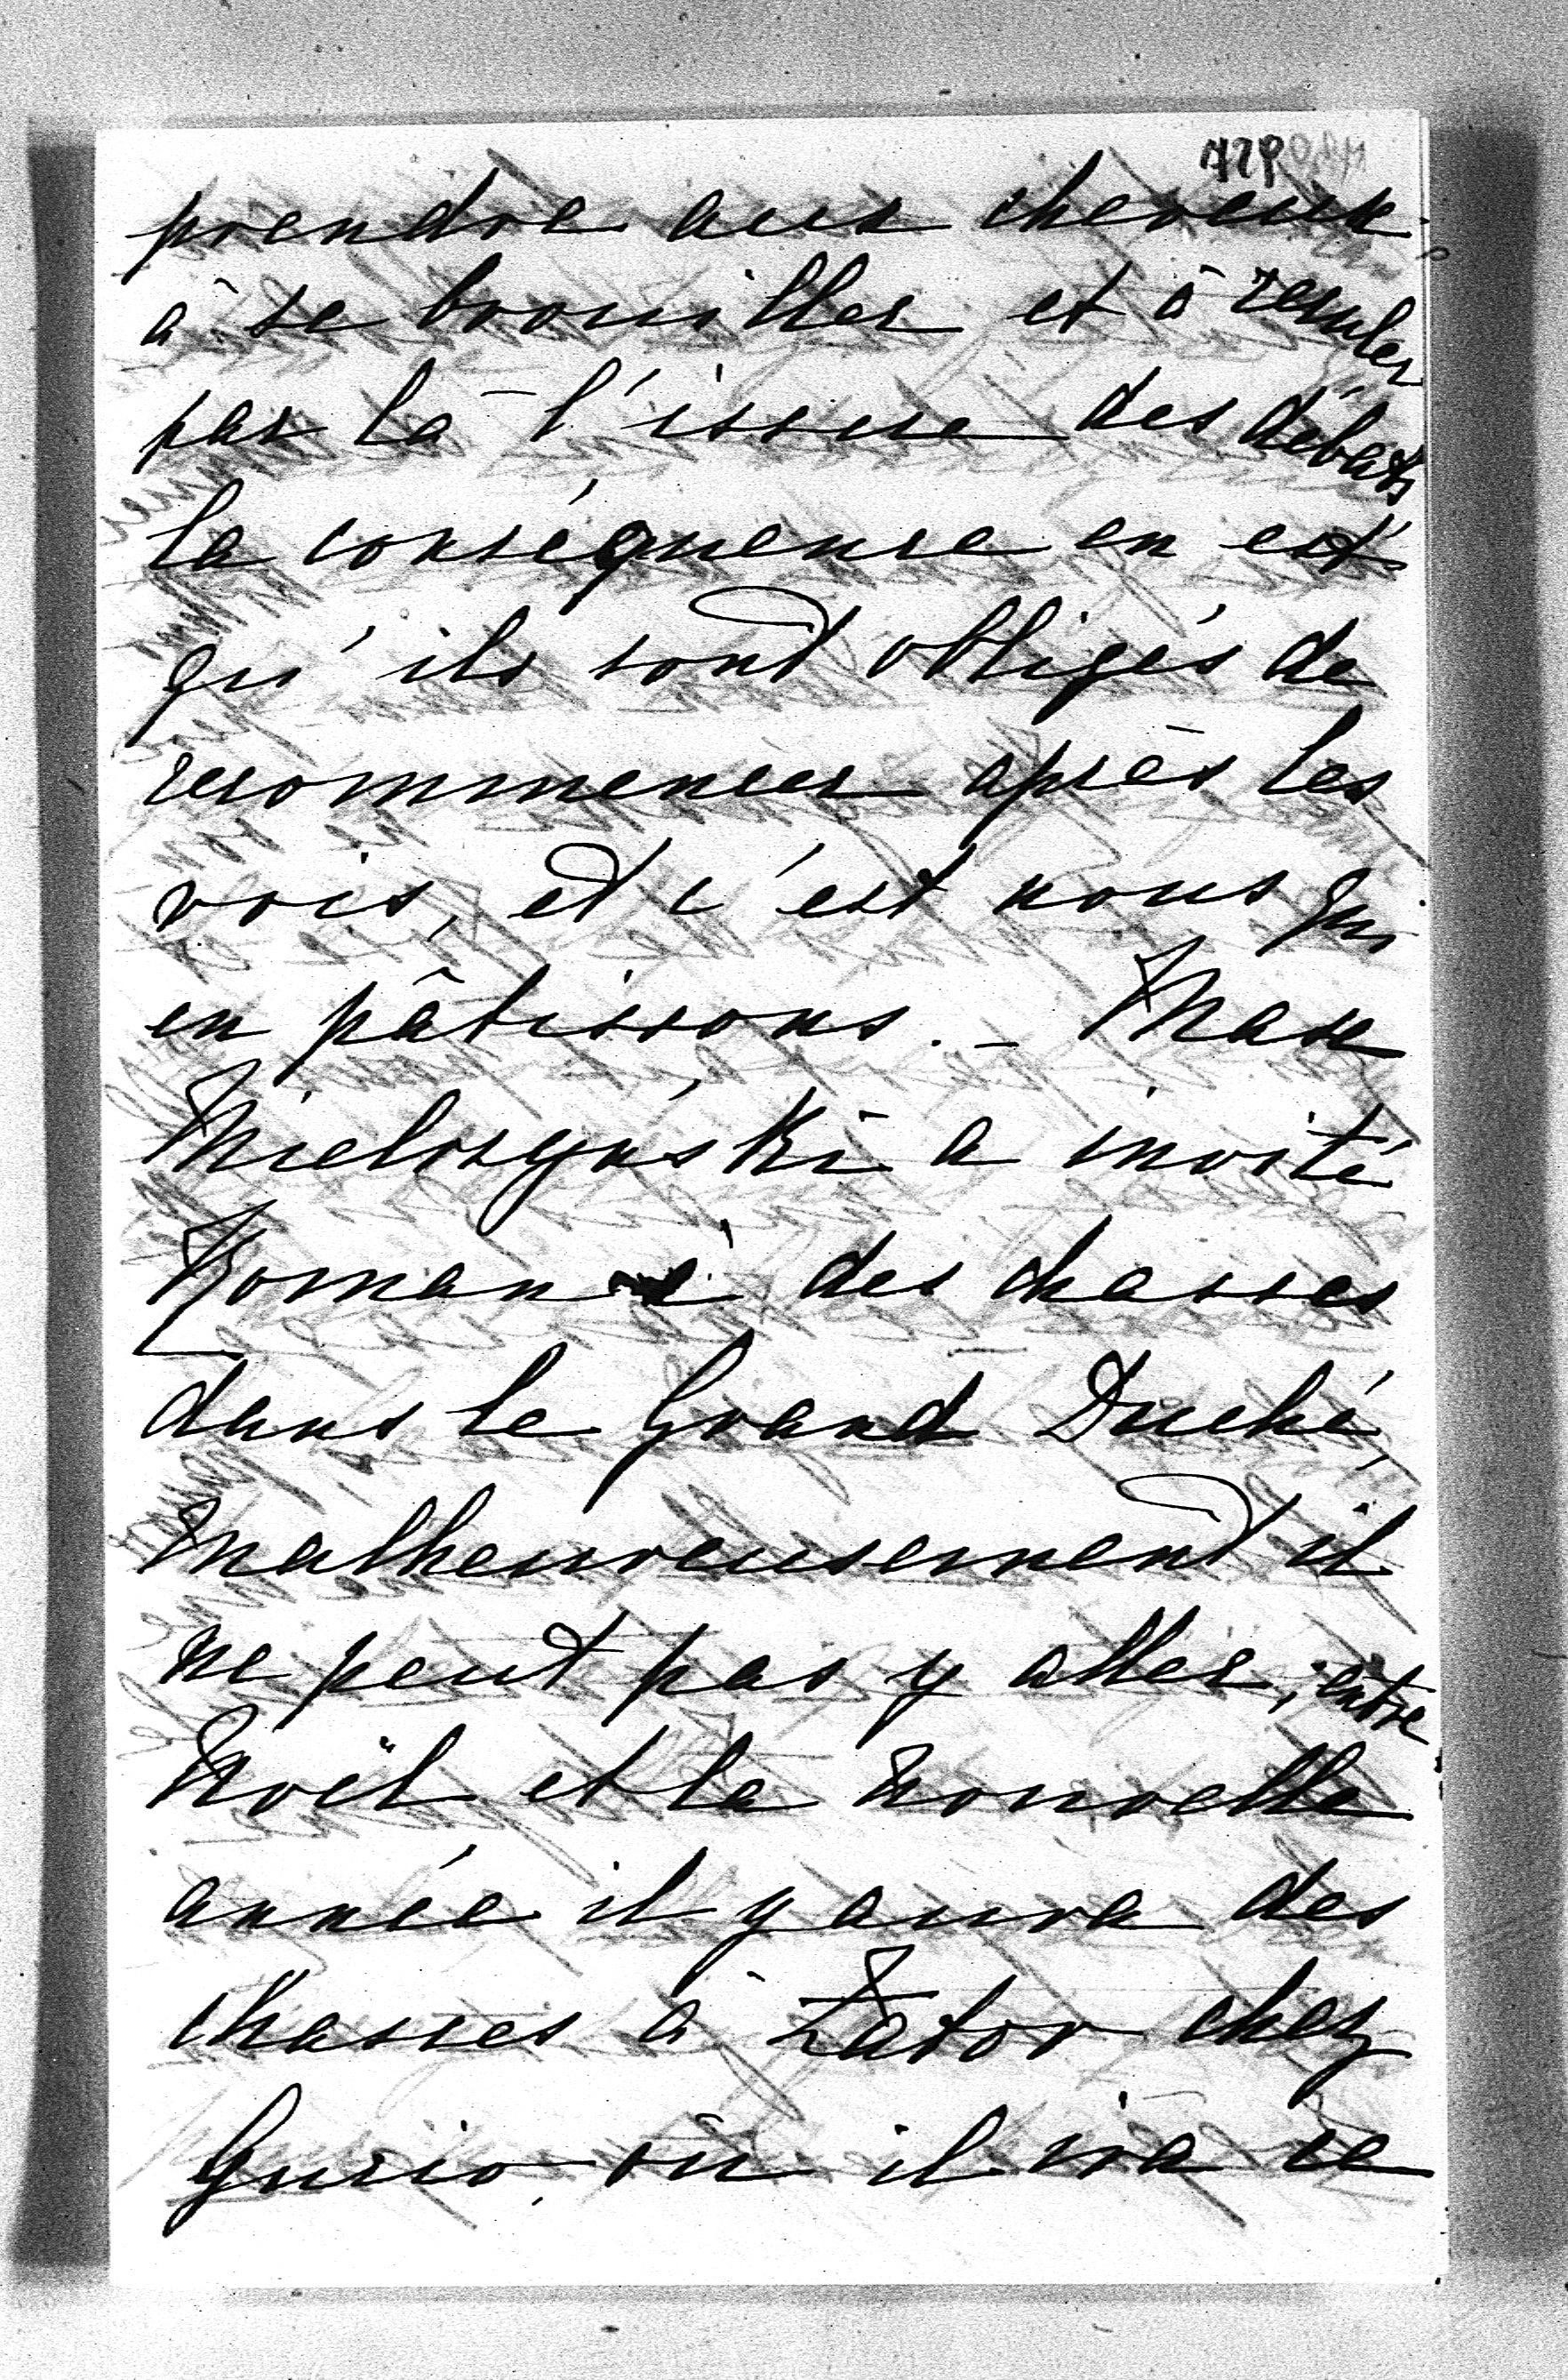 prendre aux cheveux,
à se brouiller et à reculer
par là l'issue des débats
la conséquence en est
qu'ils sont obligés de
recommencer après les
rois, et c'est nous qui
en pâtissons. – Max
Mielszyński a invité
Roman à des chasses
dans le Grand Duché,
malheureusement il
ne peut pas y aller, entre
Noël et la nouvelle
année il y aura des
chasses à Zator chez
Gucio où il ira ce